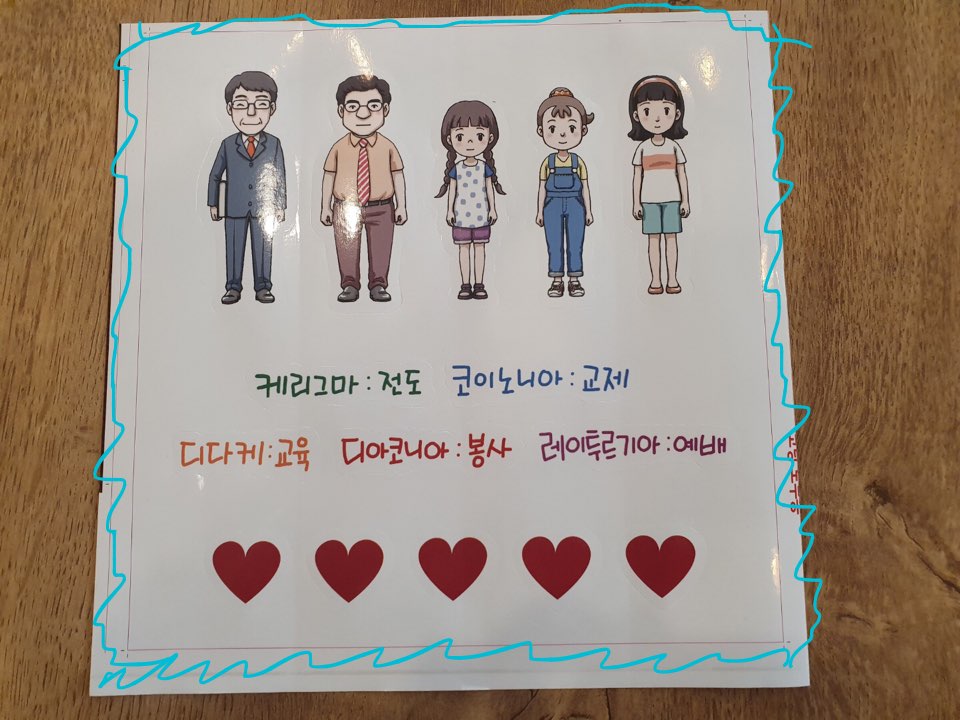 케리그마 : 전도 코이노니아 : 교제
디다케 : 교육 디아코니아 : 봉사 레이투르기아 : 예배